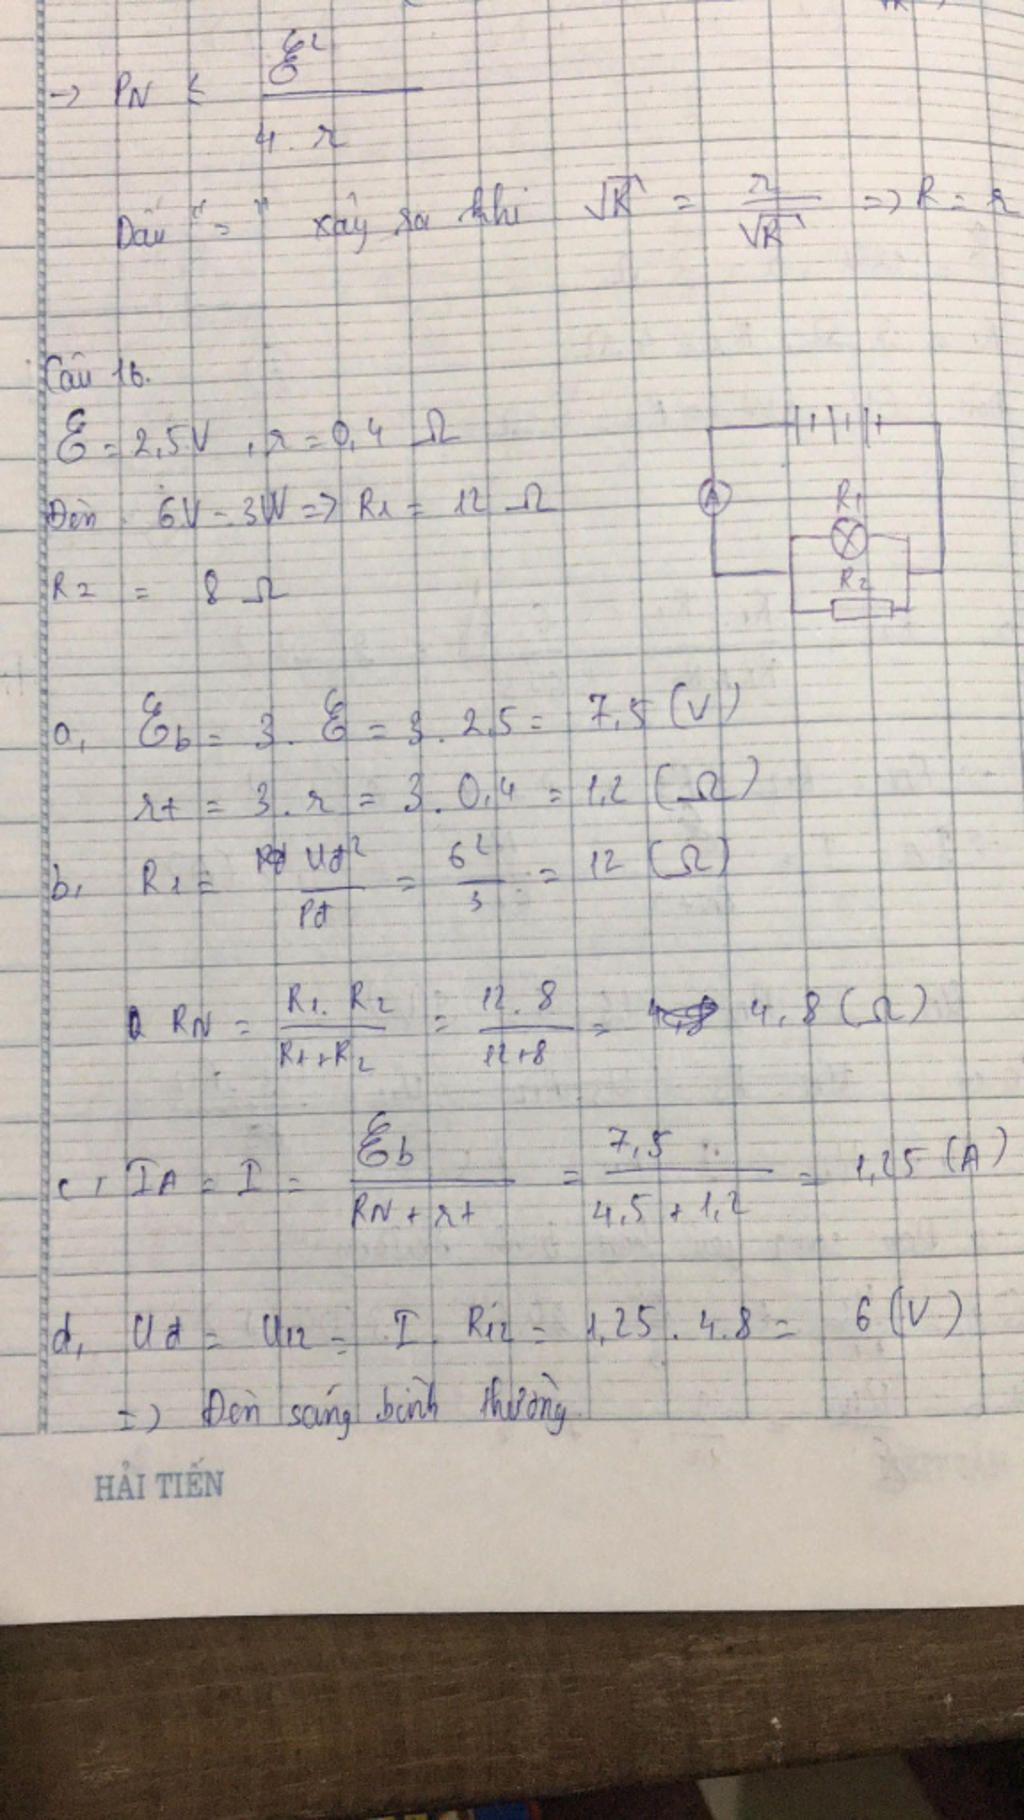 → PN ≤ ℰ² / 4.r
Dấu "=" xảy ra khi √R = r / √R => R = r
Câu 16.
ℰ = 2,5V , r = 0,4 Ω
Đèn 6V - 3W => R1 = 12 Ω
R2 = 8 Ω
A
R1
R2
a, ℰb = 3. ℰ = 3. 2,5 = 7,5 (V)
rt = 3. r = 3. 0,4 = 1,2 (Ω)
b, R1 = Uđ² / Pđ = 6² / 3 = 12 (Ω)
RN = R1. R2 / R1+R2 = 12. 8 / 12+8 = 4,8 (Ω)
c, IA = I = ℰb / RN + rt = 7,5 / 4,5 + 1,2 = 1,25 (A)
d, Uđ = U12 = I. R12 = 1,25. 4.8 = 6 (V)
=> Đèn sáng bình thường
HẢI TIẾN